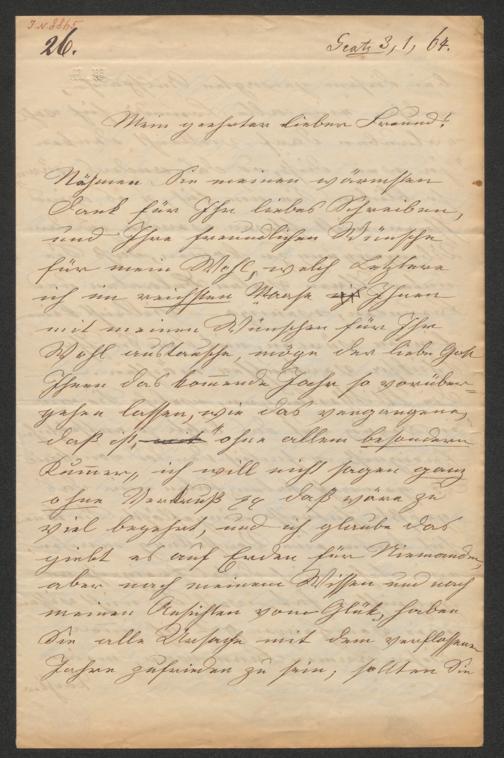 I.N. 8865
26.
Gratz 3, 1, 64.
Mein geehrter lieber Freund!
Nähmen Sie meinen wärmsten
Dank für Ihr liebes Schreiben,
und Ihre freundlichen Wünsche
für mein Wohl, welch Letztere
ich im reichsten Maase Ihnen
mit meinen Wünschen für Ihr
Wohl austausche, möge der liebe Gott
Ihnen das komende Jahr so vorüber=
gehen lassen, wie das vergangene,
daß ist, mit "ohne allem besondern
Kumer„ ich will nicht sagen ganz
ohne Verdruß daß wäre zu
viel begehrt, und ich glaube das
giebt es auf Erden für Niemanden,
aber nach meinem Wissen und nach
meinen Ansichten vom Glük, haben
Sie alle Ursache mit dem verflossenen
Jahre zufrieden zu sein, sollten Sie